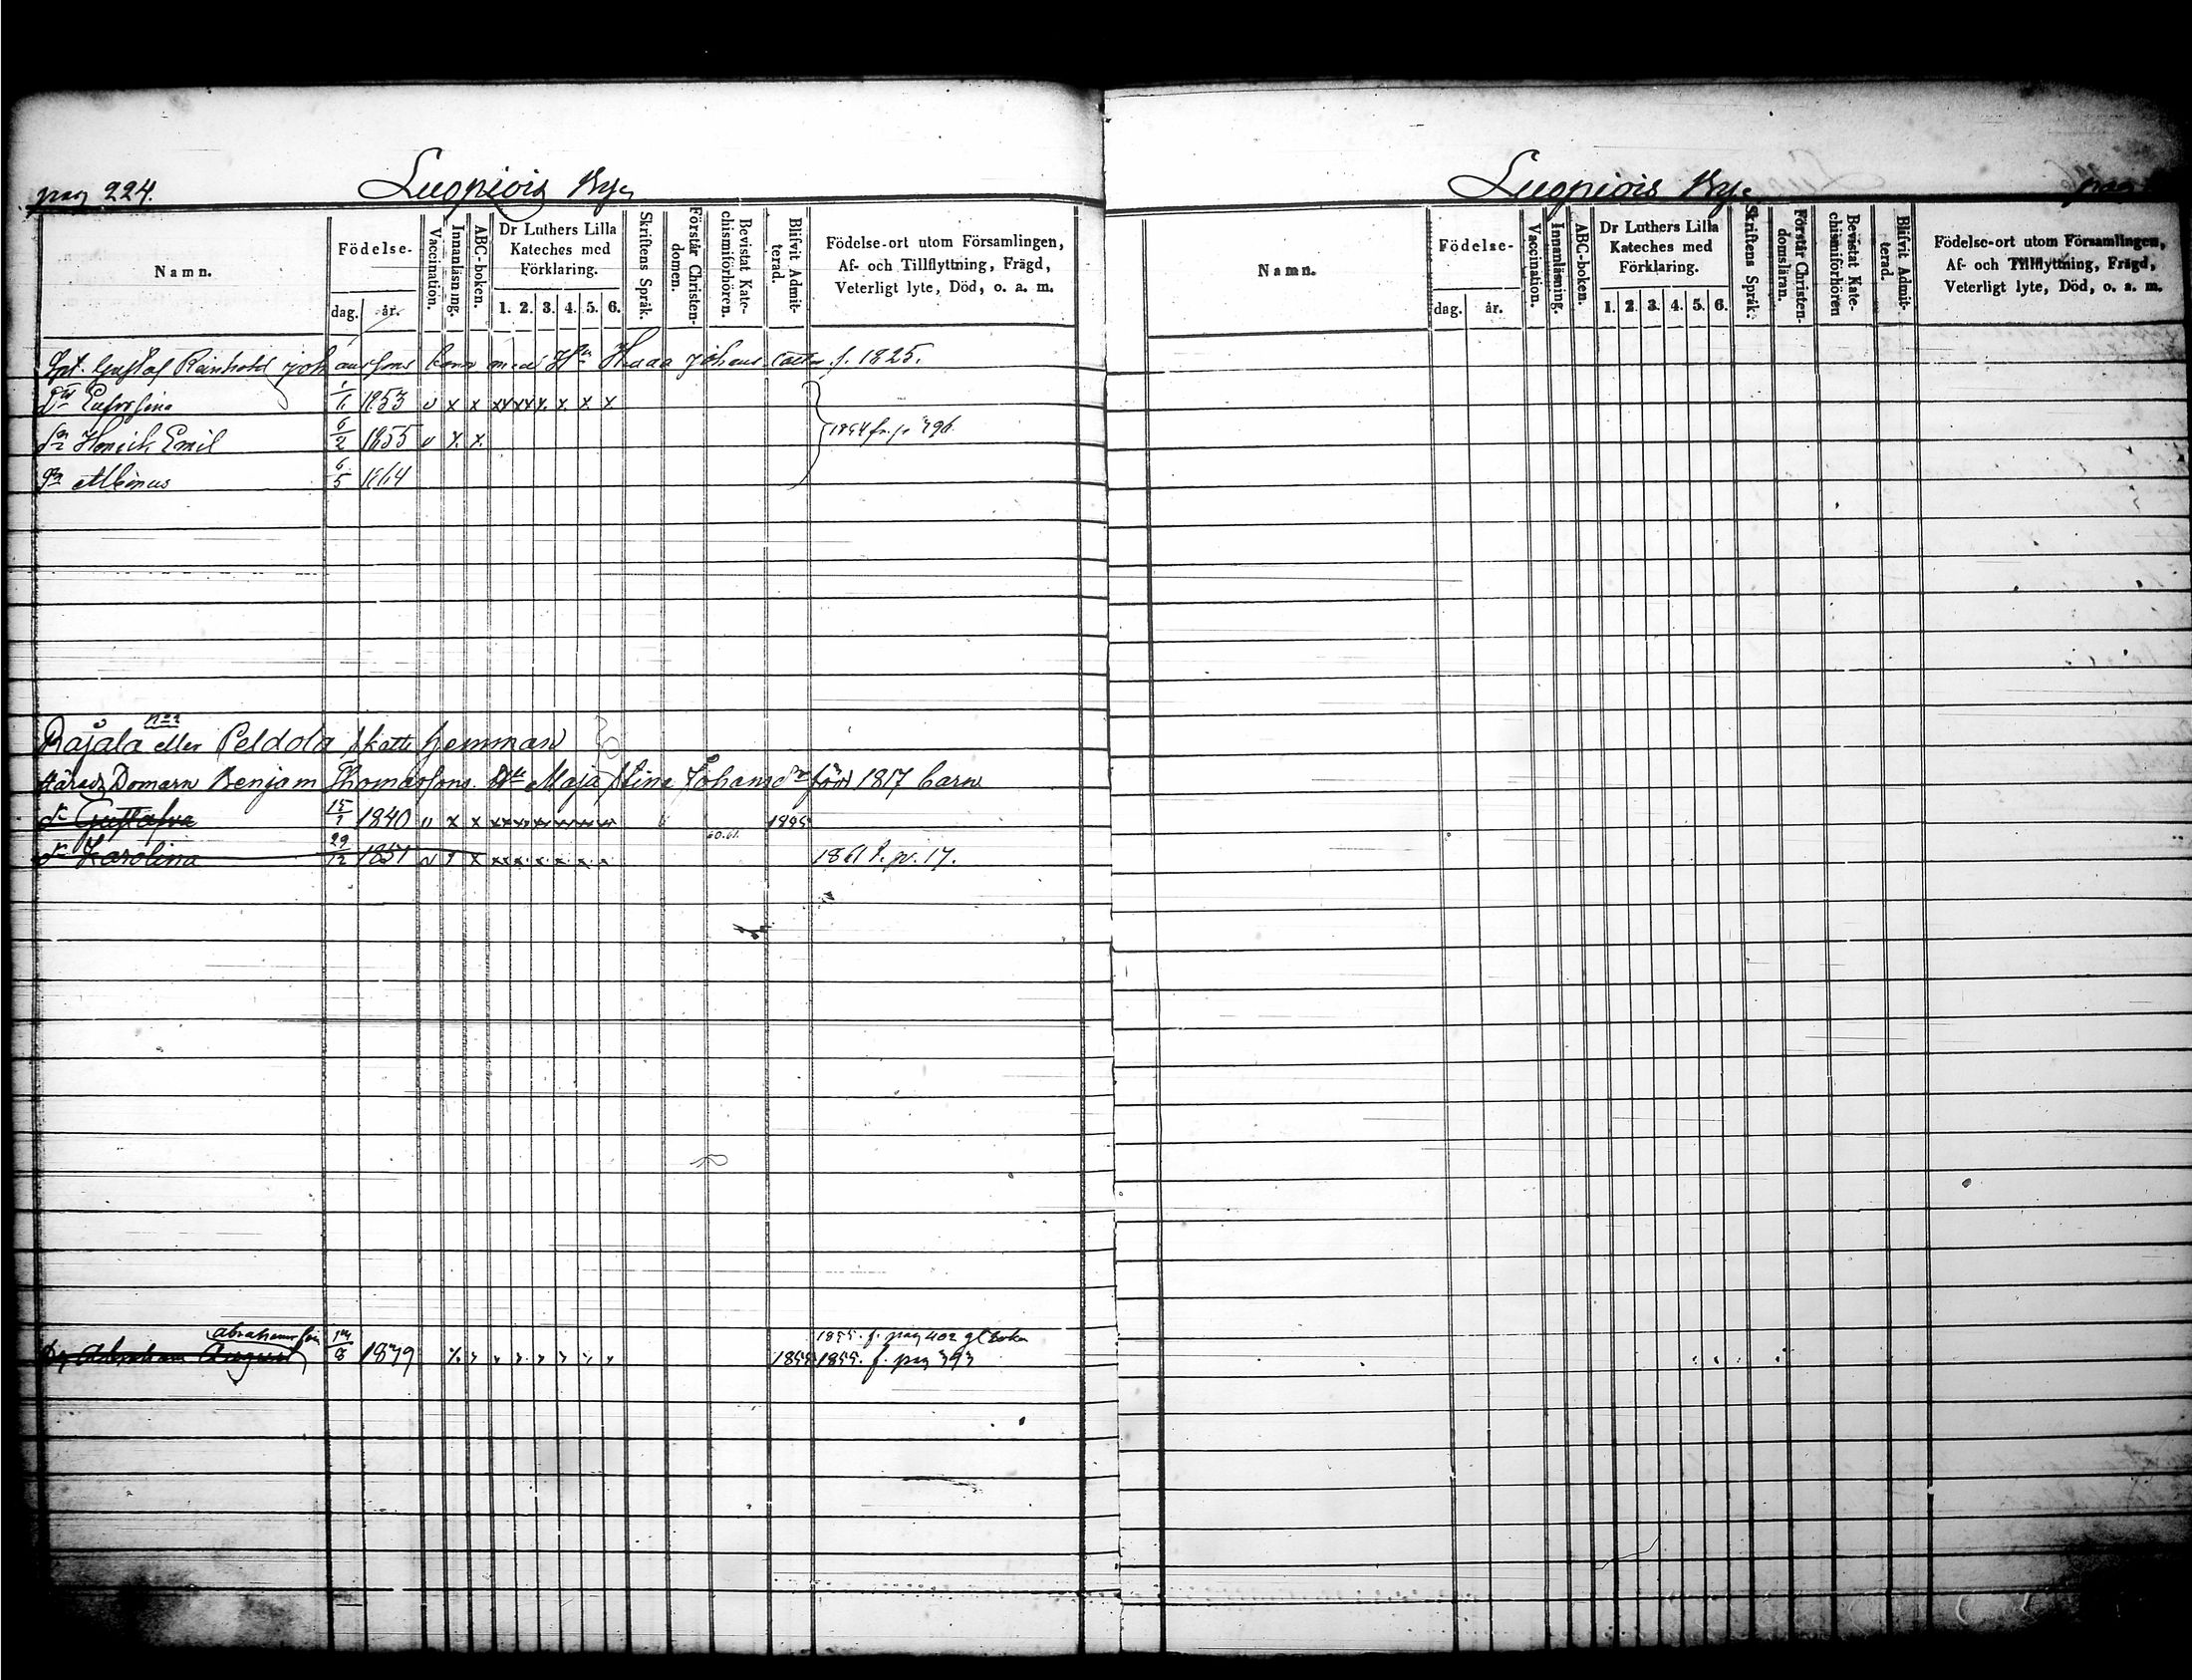 pag 224. Luopiois By
Namn. Födelse- dag. år. Vaccination. Innanläsning. ABC-boken. Dr Luthers Lilla Kateches med Förklaring. 1. 2. 3. 4. 5. 6. Skriftens Språk. Förstår Christendomen. Bevistat Katechismiförhören. Blifvit Admitterad. Födelse-ort utom Församlingen, Af- och Tillflyttning, Frägd, Veterligt lyte, Död, o. a. m.
Gustaf Reinhold Johanssons barn med H Johans f. 1825.
Dr Eufrosina 1853 v x x xx xx x. x. x x.
Sn Henrik Emil 6/2 1855 v x x. fr. p. 396
Sn Albinus 6/5 1864
Rajala eller Peldola skatte hemman
Härads Domarn Benjam Thomassons Maja Stina Johansdr född 1817 barn
dr Gustafva 15/1 1840 v x x
dr Karolina 29/12 1851 v x 1861 t. p. 17.
Abrahamsson 1855. f. pag 402 gl boken
Dg Abraham 1839 1855. f. pag 393
Luopiois By pag
Namn. Födelse- dag. år. Vaccination. Innanläsning. ABC-boken. Dr Luthers Lilla Kateches med Förklaring. 1. 2. 3. 4. 5. 6. Skriftens Språk. Förstår Christendomsläran. Bevistat Katechismiförhören Blifvit Admitterad. Födelse-ort utom Församlingen, Af- och Tillflyttning, Frägd, Veterligt lyte, Död, o. a. m.